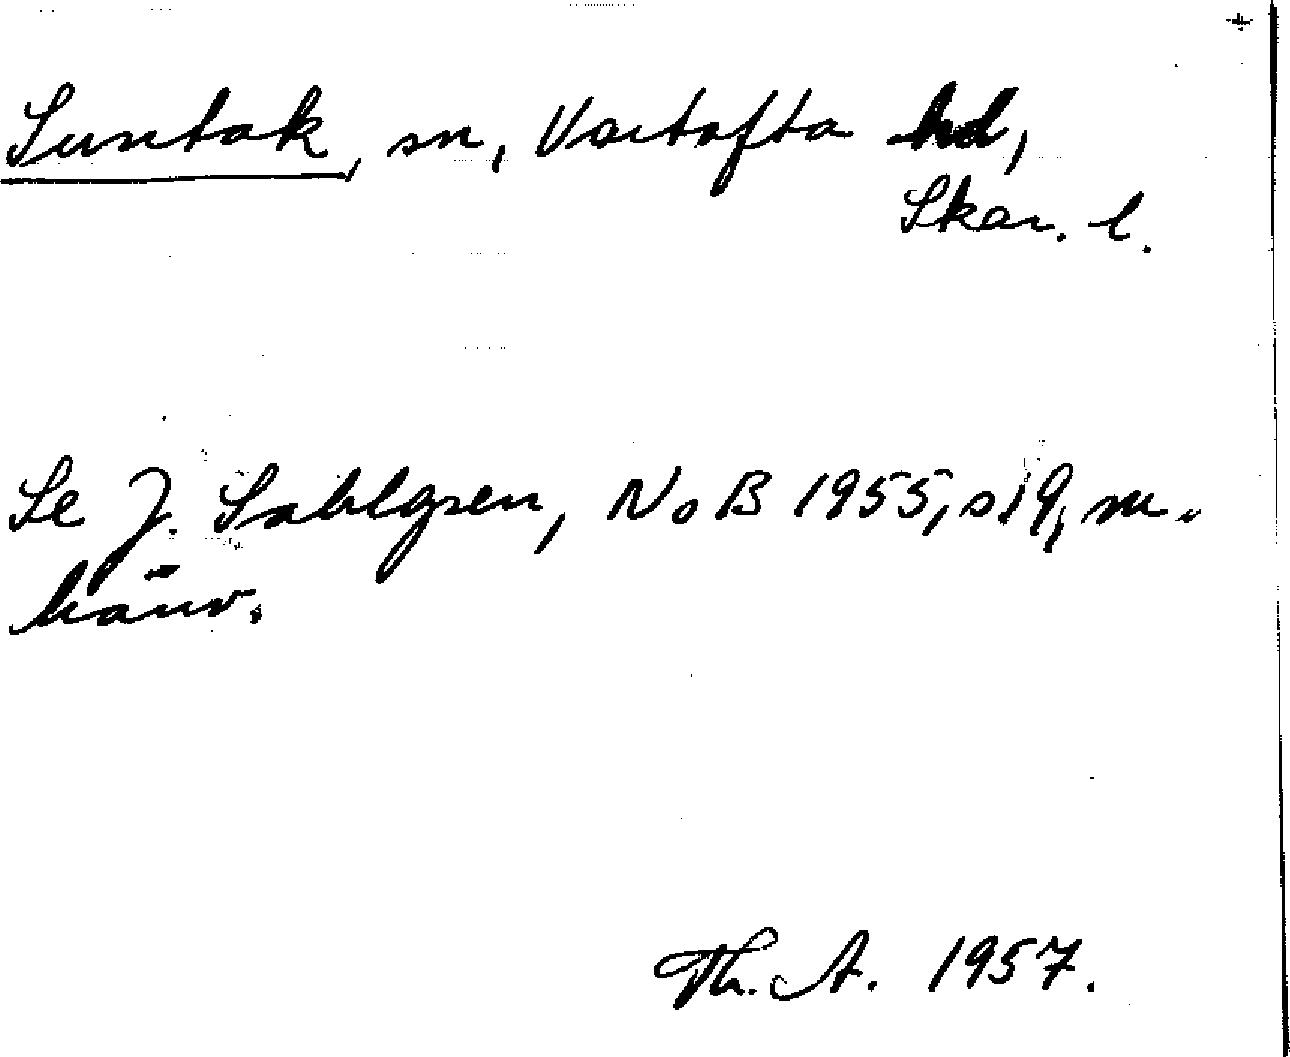 Suntak, sn, Vartofta hd,
Skar. l.
Se J. Sahlgren, NoB 1955, s 19, m.
hänv.
Th. A. 1957.